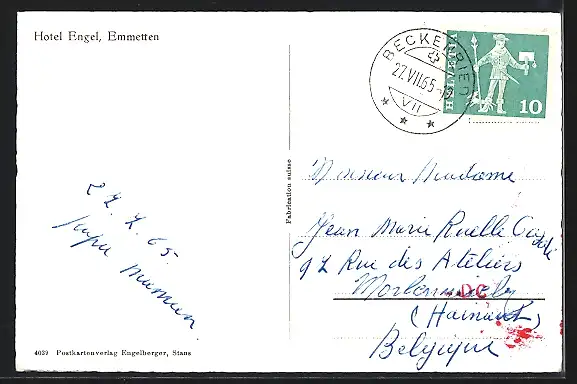 Hotel Engel, Emmetten
BECKENRIED
27.VII.65
VII
HELVETIA
10
Fabrication suisse
Monsieur Madame
Jean Marie Ruelle
92 Rue des Ateliers
Morlanwelz
(Hainaut)
Belgique
27.7.65
papa maman
4039 Postkartenverlag Engelberger, Stans